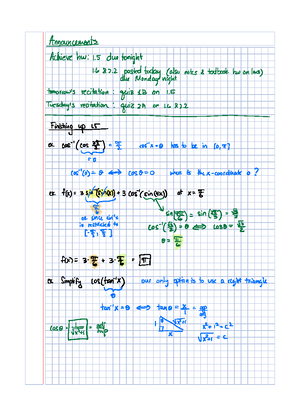 Announcements
Achieve hw: 1.5 due tonight
1.6 & 2.2 posted today (also notes & textbook hw on hw)
due Monday night
tomorrow's recitation: quiz on 1.5
Tuesday's recitation: quiz on 1.6 & 2.2
Finishing up 1.5
ex. cos⁻¹(cos 3π/2) = π/2 cos⁻¹x = θ has to be in [0, π]
= 0
cos⁻¹(0) = θ ⟺ cos θ = 0 when is the x-coordinate 0?
ex. f(x) = 3 sin⁻¹(sin(x)) + 3 cos⁻¹(sin(2x)) at x = π/6
π/6
as since sin's
is restricted to
[-π/2, π/2]
sin(π/3) = √3/2
cos⁻¹(√3/2) = θ ⟺ cos θ = √3/2
θ = π/6
f(x) = 3·π/6 + 3·π/6 = π
ex. Simplify cos(tan⁻¹x) our only option is to use a right triangle
θ
tan⁻¹x = θ ⟺ tan θ = x/1 = opp/adj
cos θ = 1/√(x²+1) = adj/hyp
1
√(x²+1)
x
x² + 1² = c²
√(x²+1) = c